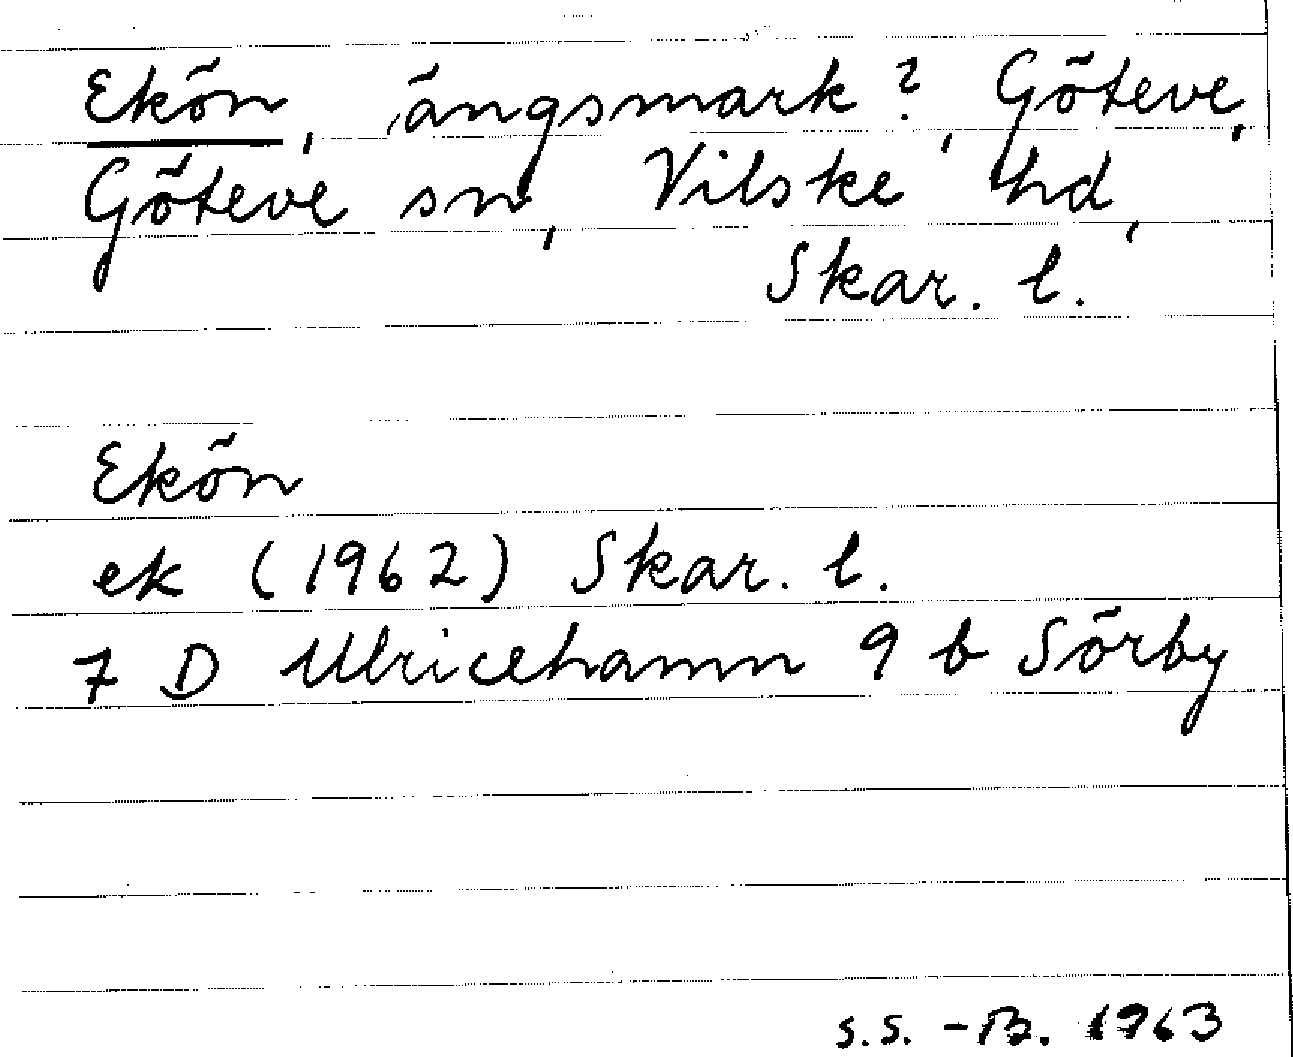 Ekön, ängsmark?, Göteve,
Göteve sn, Vilske hd,
Skar. l.
Ekön
ek (1962) Skar. l.
7 D Ulricehamn 9 b Sörby
S.S. -B. 1963